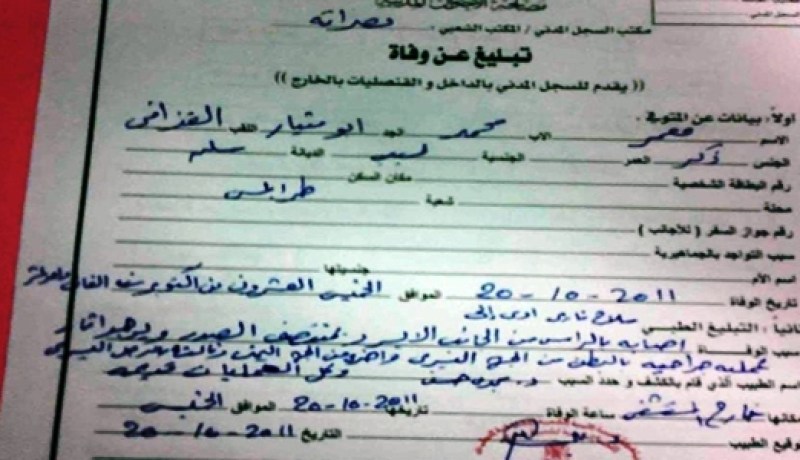 مكتب السجل المدني / المكتب الشعبي : مصراته
تبليغ عن وفاة
(( يقدم للسجل المدني بالداخل و القنصليات بالخارج ))
أولاً : بيانات عن المتوفي .
الاسم معمر الاب محمد الجد ابو منيار اللقب القذافي
الجنس ذكر العمر الجنسية ليبي الديانة مسلم
رقم البطاقة الشخصية مكان السكن
محلة شعبية طرابلس
رقم جواز السفر ( للأجانب )
سبب التواجد بالجماهيرية
اسم الأم جنسيتها
تاريخ الوفاة 20-10-2011 الموافق الخميس العشرون من اكتوبر
ثانياً : التبليغ الطبي سلاح ناري ادى الى
سبب الوفاة اصابه بالراس من الجانب الايسر بمنتصف الصدر
عمليه جراحيه بالبطن من الجهة اليسرى
اسم الطبيب الذي قام بالكشف و حدد السبب وكل العمليات قديمه
مكانها خارج المستشفى ساعة الوفاة تاريخها 20-10-2011 الموافق الخميس
توقيع الطبيب التاريخ 20-10-2011